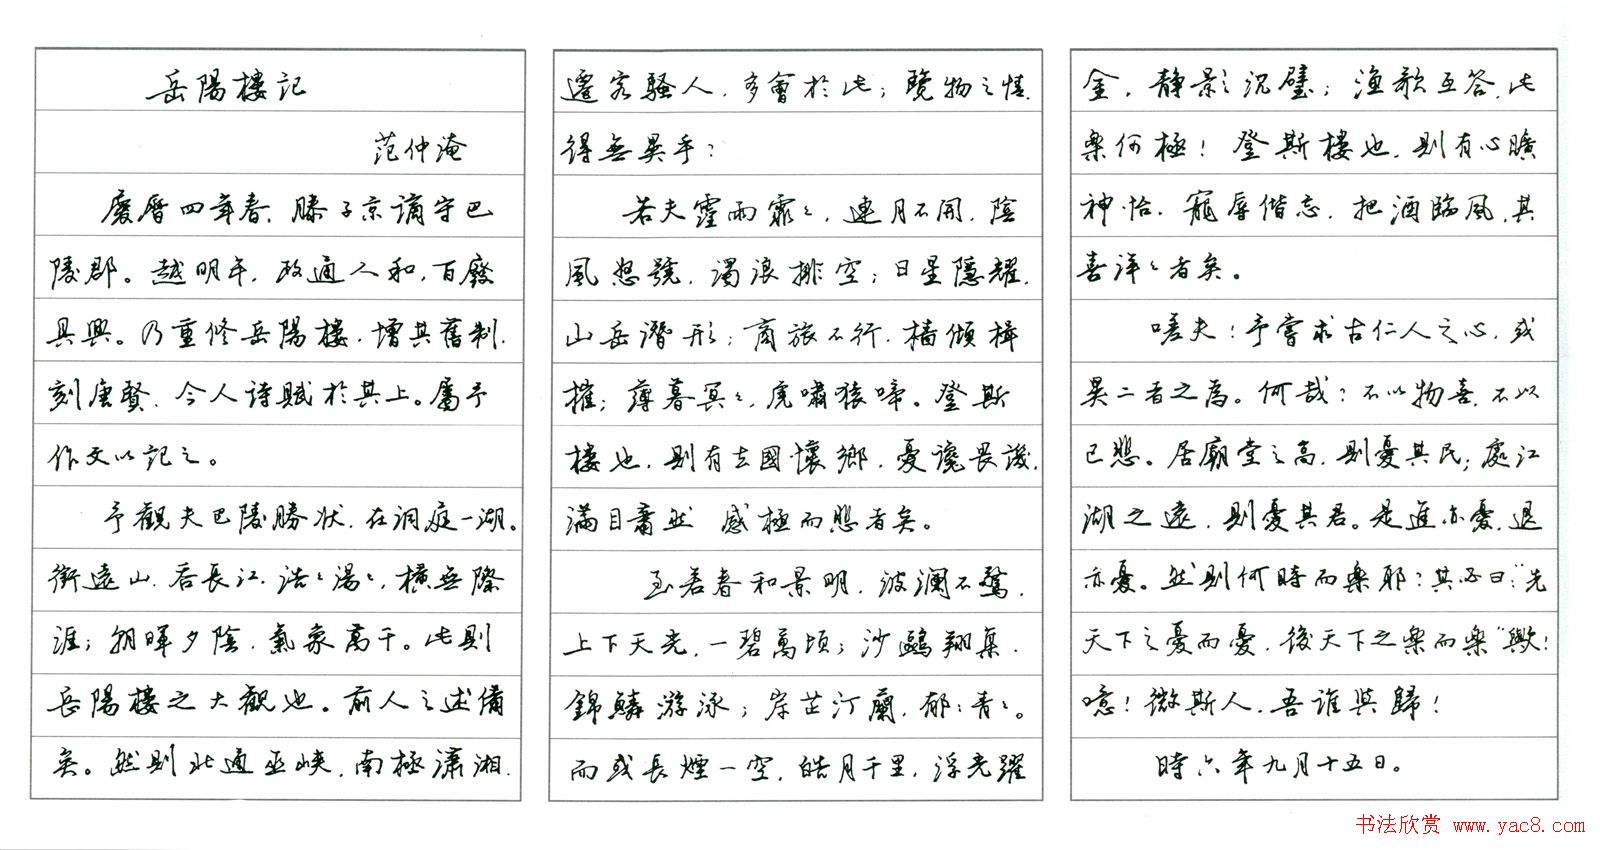 岳陽樓記
范仲淹
慶曆四年春，滕子京謫守巴
陵郡。越明年，政通人和，百廢
具興。乃重修岳陽樓，增其舊制，
刻唐賢、今人詩賦於其上。屬予
作文以記之。
予觀夫巴陵勝狀，在洞庭一湖。
銜遠山，吞長江，浩〻湯〻，橫無際
涯；朝暉夕陰，氣象萬千。此則
岳陽樓之大觀也。前人之述備
矣。然則北通巫峽，南極瀟湘，
遷客騷人，多會於此；覽物之情，
得無異乎？
若夫霪雨霏〻，連月不開，陰
風怒號，濁浪排空；日星隱耀，
山岳潛形；商旅不行，檣傾楫
摧；薄暮冥〻，虎嘯猿啼。登斯
樓也，則有去國懷鄉，憂讒畏譏，
滿目蕭然 感極而悲者矣。
至若春和景明，波瀾不驚，
上下天光，一碧萬頃；沙鷗翔集，
錦鱗游泳；岸芷汀蘭，郁〻青〻。
而或長煙一空，皓月千里，浮光躍
金，静影沉璧；漁歌互答，此
樂何極！登斯樓也，則有心曠
神怡，寵辱偕忘，把酒臨風，其
喜洋〻者矣。
嗟夫！予嘗求古仁人之心，或
異二者之為。何哉？不以物喜，不以
己悲。居廟堂之高，則憂其民；處江
湖之遠，則憂其君。是進亦憂，退
亦憂。然則何時而樂耶？其必曰：“先
天下之憂而憂，後天下之樂而樂”歟！
噫！微斯人，吾誰與歸！
時六年九月十五日。
书法欣赏 www.yac8.com